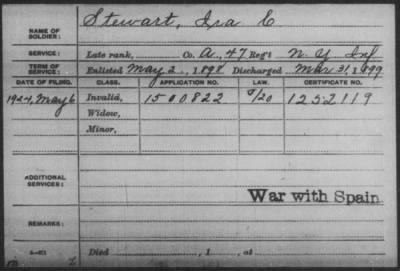 NAME OF SOLDIER: Stewart, Ira C
SERVICE: Late rank, Co. A, 47 Reg't N. Y. Inf
TERM OF SERVICE: Enlisted May 2, 1898 Discharged Mar 31, 1899
DATE OF FILING. CLASS. APPLICATION NO. LAW. CERTIFICATE NO.
1924, May 6 Invalid, 1500822 1252119
Widow,
Minor,
ADDITIONAL SERVICES:
War with Spain
REMARKS:
Died , 1 , at